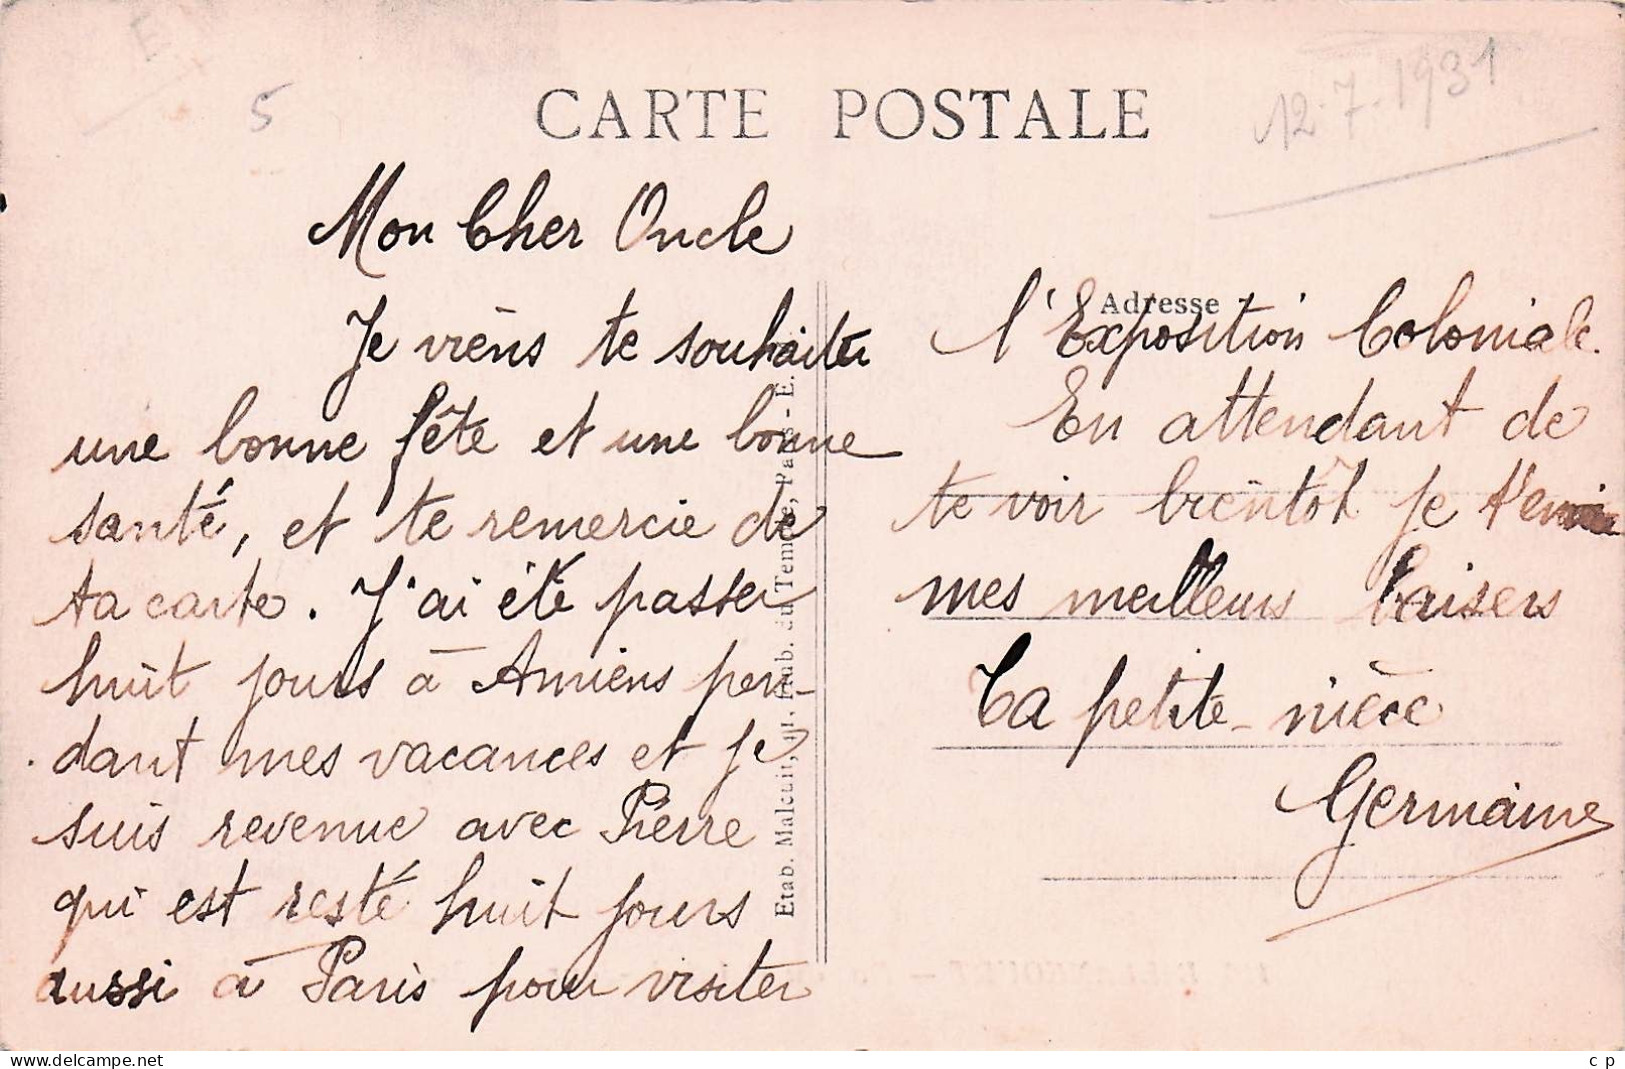 E
5
CARTE POSTALE
12.7.1931
Mon Cher Oncle
Je viens te souhaiter
une bonne fête et une bonne
santé, et te remercie de
ta carte. J'ai été passer
huit jours à Amiens pen-
dant mes vacances et je
suis revenue avec Pierre
qui est resté huit jours
aussi à Paris pour visiter
Etab. Malcuit, 41, Faub. du Temple, Paris - E.
Adresse
l'Exposition Coloniale.
En attendant de
te voir bientôt je t'envoie
mes meilleurs baisers
Ta petite-nièce
Germaine
www.delcampe.net
c p